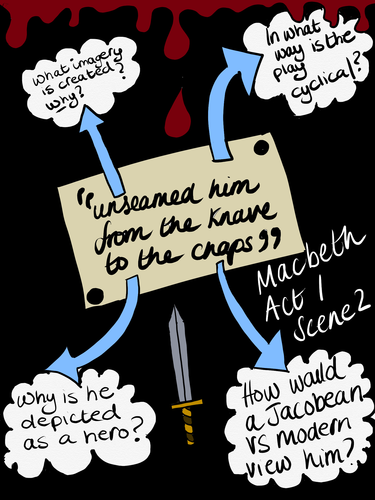 What imagery
is created?
why?
In what
way is the
play
cyclical?
"unseamed him
from the Knave
to the chaps"
Macbeth
Act 1
Scene 2
Why is he
depicted
as a hero?
How would
a Jacobean
vs modern
view him?